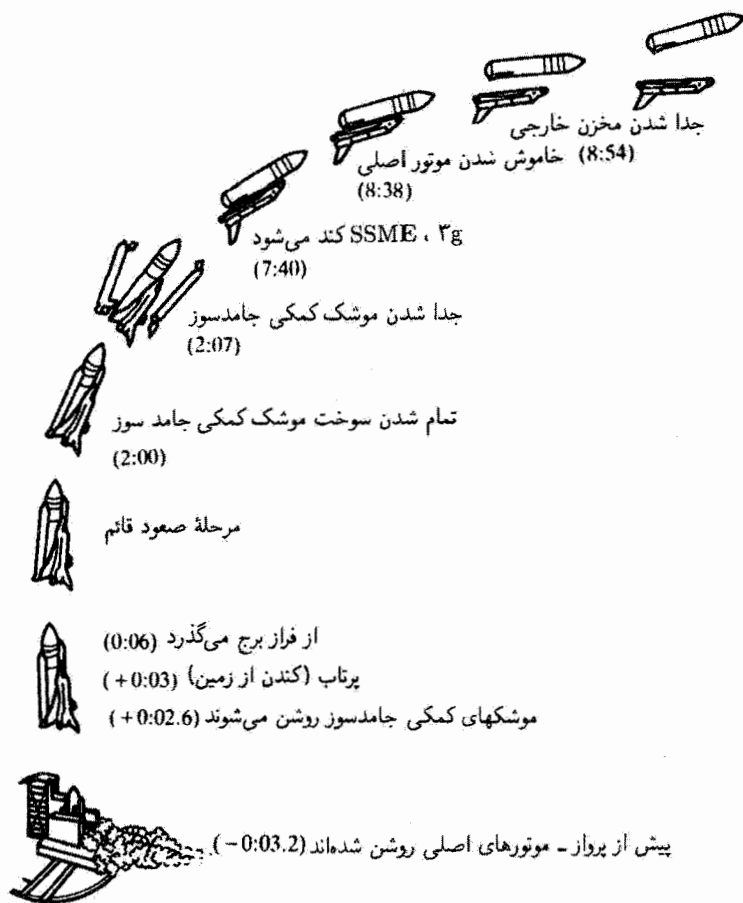 جدا شدن مخزن خارجی
(8:54) خاموش شدن موتور اصلی
(8:38)
SSME ، ۳g کند می‌شود
(7:40)
جدا شدن موشک کمکی جامدسوز
(2:07)
تمام شدن سوخت موشک کمکی جامد سوز
(2:00)
مرحلهٔ صعود قائم
از فراز برج می‌گذرد (0:06)
پرتاب (کندن از زمین) (+0:03)
موشکهای کمکی جامدسوز روشن می‌شوند (+0:02.6)
پیش از پرواز - موتورهای اصلی روشن شده‌اند (−0:03.2)